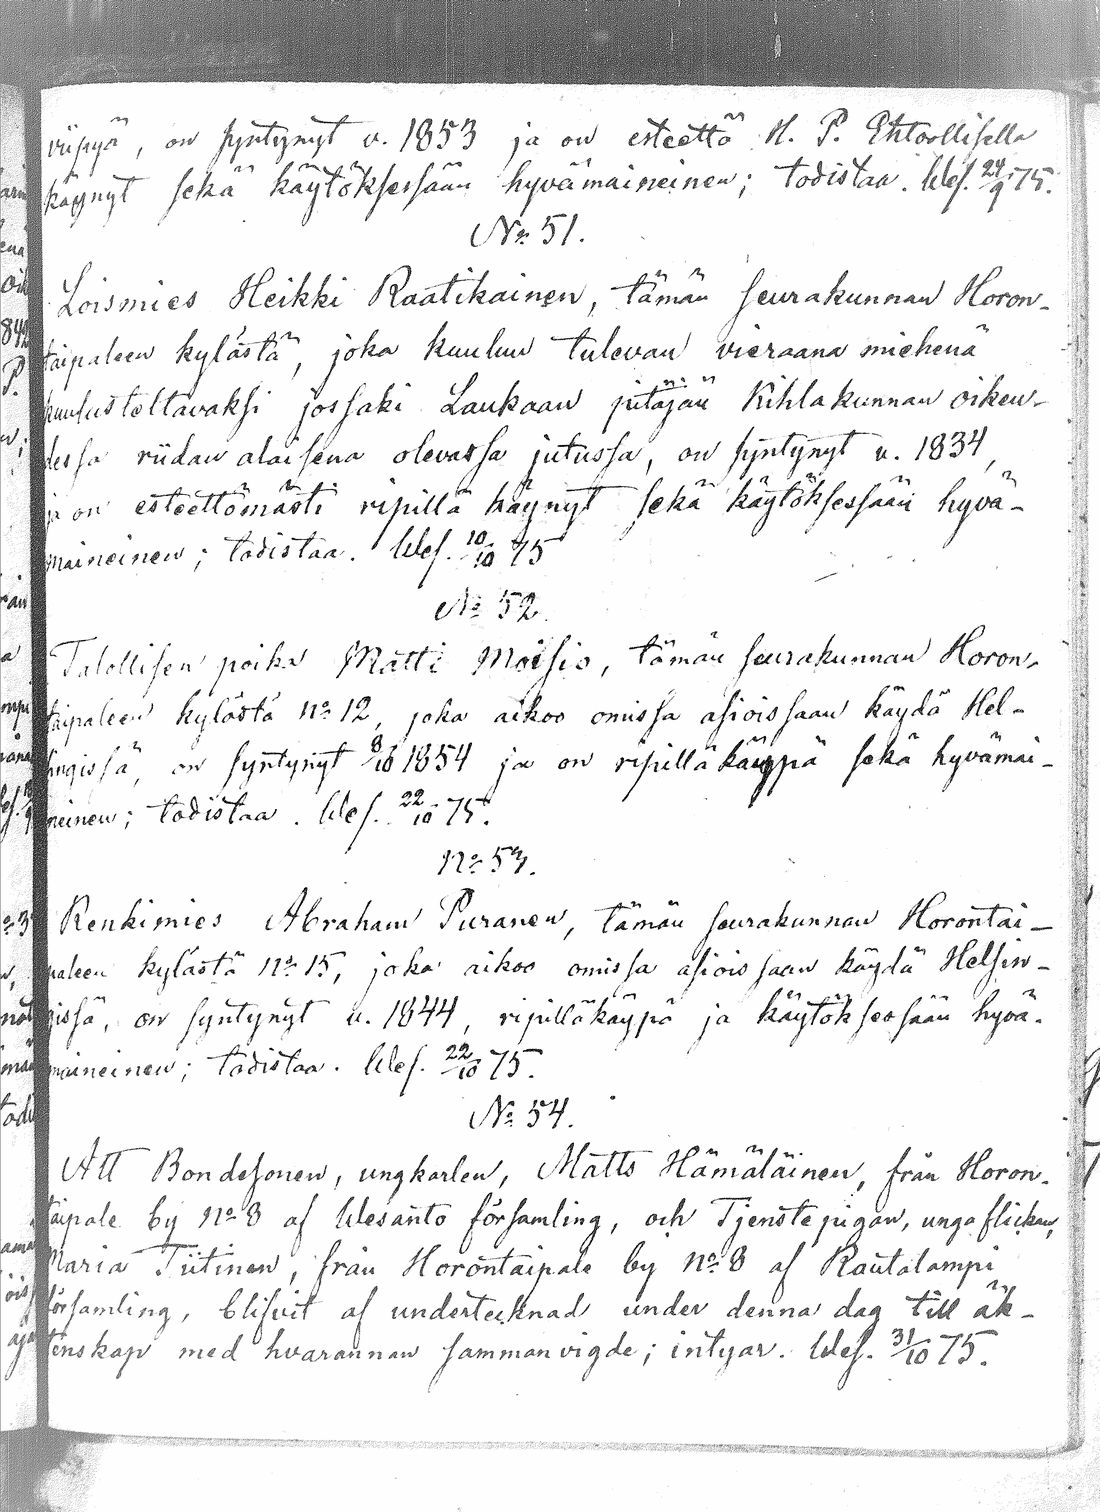 viipyä, on syntynyt v. 1853 ja on esteettä H. P. Ehtoollisella
käynyt sekä käytöksessään hyvämaineinen; todistaa. Wes. 24/9 75.
No 51.
Loismies Heikki Raatikainen, tämän seurakunnan Horon-
taipaleen kylästä, joka kuuluu tulevan vieraana miehenä
kuulusteltavaksi jossaki Laukaan pitäjän Kihlakunnan oikeu-
dessa riidan alaisena olevassa jutussa, on syntynyt v. 1834,
ja on esteettömästi ripillä käynyt sekä käytöksessään hyvä-
maineinen; todistaa. Wes. 10/10 75
No 52.
Talollisen poika Matti Moisio, tämän seurakunnan Horon-
taipaleen kylästä no 12, joka aikoo omissa asioissaan käydä Hel-
singissä, on syntynyt 8/10 1854 ja on ripilläkäypä sekä hyvämai-
neinen; todistaa. Wes. 22/10 75.
No 53.
Renkimies Abraham Puranen, tämän seurakunnan Horontai-
paleen kylästä no 15, joka aikoo omissa asioissaan käydä Helsin-
gissä, on syntynyt v. 1844, ripilläkäypä ja käytöksessään hyvä-
maineinen; todistaa. Wes. 22/10 75.
No 54.
Att Bondesonen, ungkarlen, Matts Hämäläinen, från Horon-
taipale by no 8 af Wesanto församling, och Tjenstepigan, unga flickan,
Maria Tiitinen, från Horontaipale by no 8 af Rautalampi
församling, blifvit af undertecknad under denna dag till äk-
tenskap med hvarannan sammanvigde; intygar. Wes. 31/10 75.